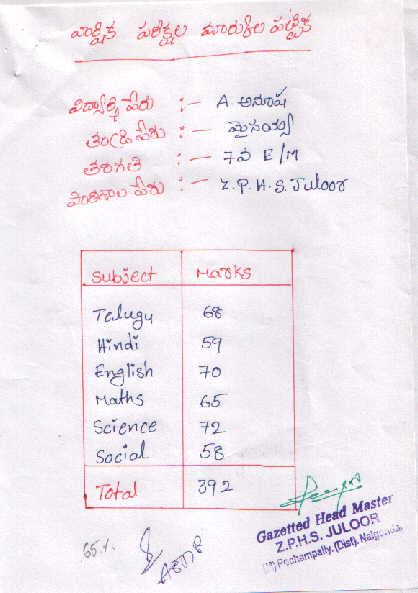 వార్షిక పరీక్షల మార్కుల పట్టిక
విద్యార్థి పేరు :- A అనూష
తండ్రి పేరు :- మైసయ్య
తరగతి :- 7వ E/M
పాఠశాల పేరు :- Z.P.H.S. Juloor
Subject Marks
Telugu 68
Hindi 59
English 70
Maths 65
Science 72
Social 58
Total 392
65.1.
Gazetted Head Master
Z.P.H.S. JULOOR
(M) Pochampally, (Dist), Nalgonda